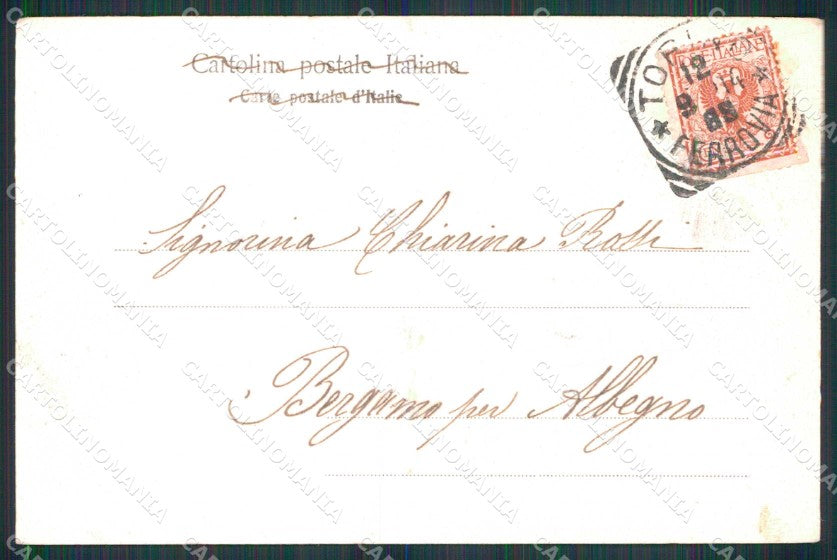 Cartolina postale Italiana
Carte postale d'Italie
TORI
12
9 10
FERROVIA
POSTE ITALIANE
Signorina Chiarina Rossi
Bergamo per Albegno
CARTOLINOMANIA